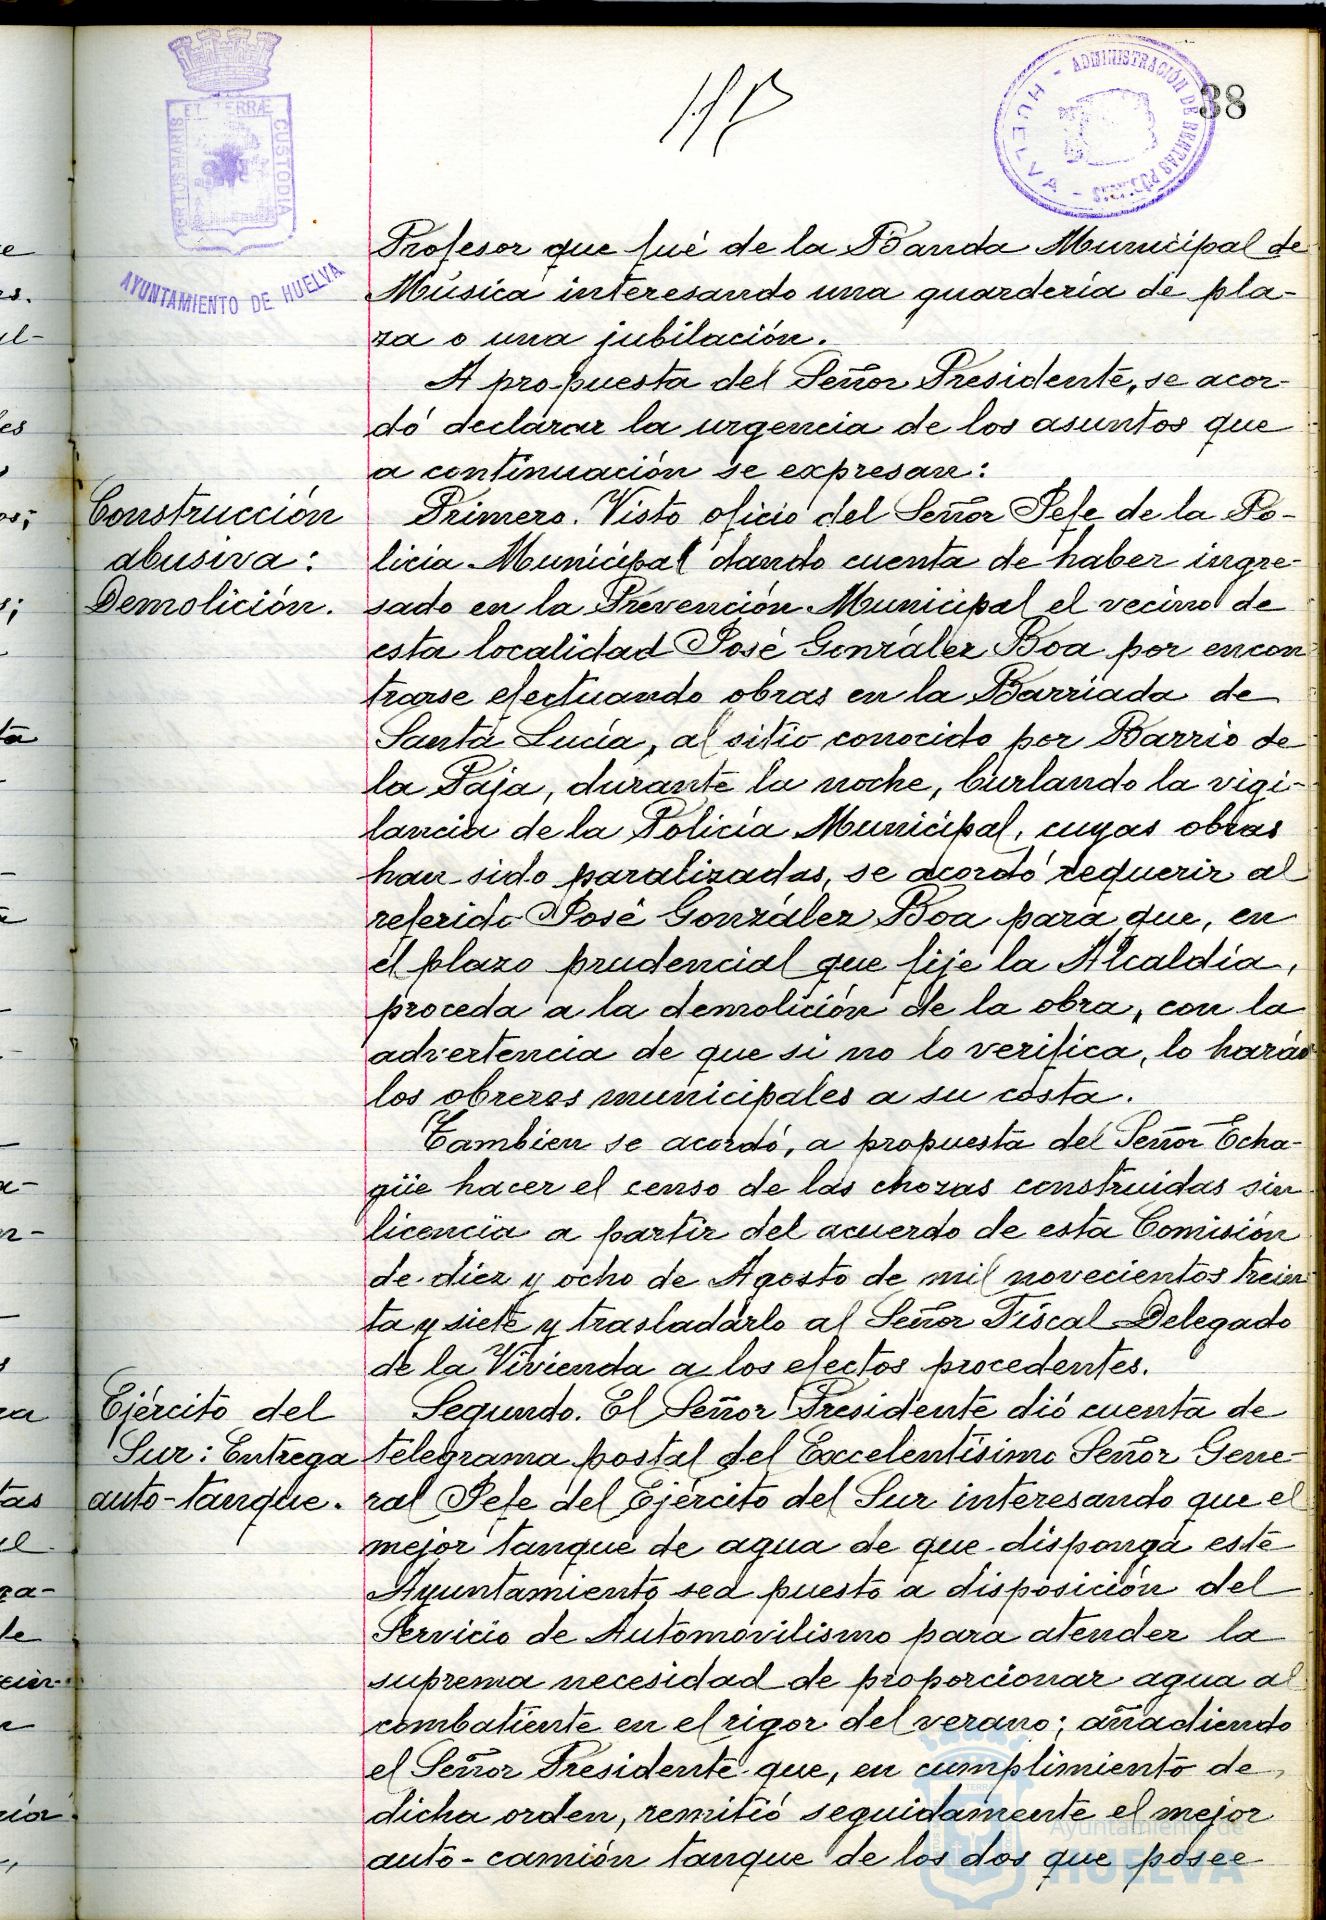 38
ADMINISTRACIÓN DE RENTAS PÚBLICAS - HUELVA -
PORTUS MARIS ET TERRÆ CUSTODIA
AYUNTAMIENTO DE HUELVA
Profesor que fué de la Banda Municipal de
Música interesando una guardería de pla-
za o una jubilación.
A propuesta del Señor Presidente, se acor-
dó declarar la urgencia de los asuntos que
a continuación se expresan:
Construcción
abusiva:
Demolición.
Primero. Visto oficio del Señor Jefe de la Po-
licia Municipal dando cuenta de haber ingre-
sado en la Prevención Municipal el vecino de
esta localidad José González Boa por encon
trarse efectuando obras en la Barriada de
Santa Lucía, al sitio conocido por Barrio de
la Paja, durante la noche, burlando la vigi-
lancia de la Policía Municipal, cuyas obras
han sido paralizadas, se acordó requerir al
referido José González Boa para que, en
el plazo prudencial que fije la Alcaldía,
proceda a la demolición de la obra, con la
advertencia de que si no lo verifica, lo harán
los obreros municipales a su costa.
Tambien se acordó, a propuesta del Señor Echa-
güe hacer el censo de las chozas construidas sin
licencia a partir del acuerdo de esta Comisión
de diez y ocho de Agosto de mil novecientos trein
ta y siete y trasladarlo al Señor Fiscal Delegado
de la Vivienda a los efectos procedentes.
Ejército del
Sur: Entrega
auto-tanque.
Segundo. El Señor Presidente dió cuenta de
telegrama postal del Excelentísimo Señor Gene-
ral Jefe del Ejército del Sur interesando que el
mejor tanque de agua de que disponga este
Ayuntamiento sea puesto a disposición del
Servicio de Automovilismo para atender la
suprema necesidad de proporcionar agua al
combatiente en el rigor del verano; añadiendo
el Señor Presidente que, en cumplimiento de
dicha orden, remitió seguidamente el mejor
auto-camión tanque de los dos que posee
Ayuntamiento de
HUELVA